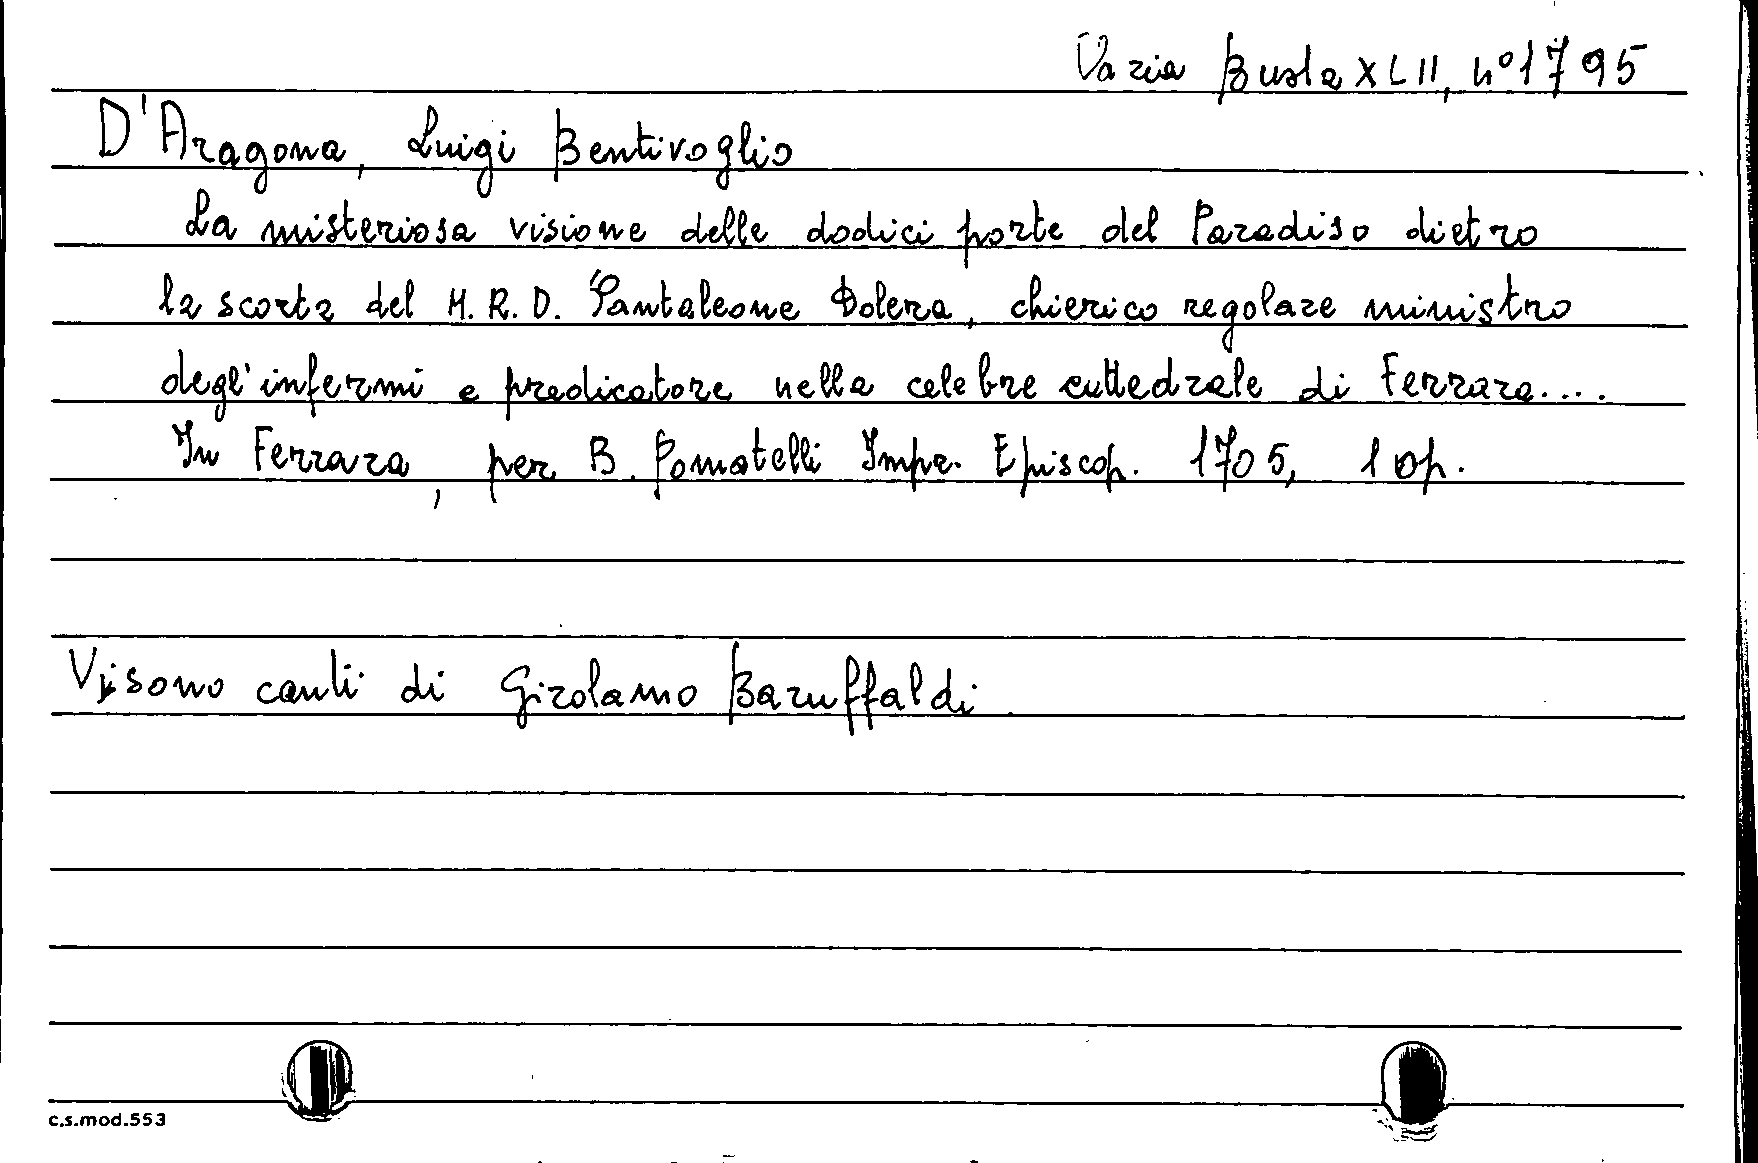 Varia Busta XLII, n° 1795
D'Aragona, Luigi Bentivoglio
La misteriosa visione delle dodici porte del Paradiso dietro
la scorta del M. R. D. Pantaleone Dolera, chierico regolare ministro
degl'infermi e predicatore nella celebre cattedrale di Ferrara....
In Ferrara, per B. Pomatelli Impr. Episcop. 1705, 1 op.
Vi sono canti di Girolamo Baruffaldi
c.s.mod.553